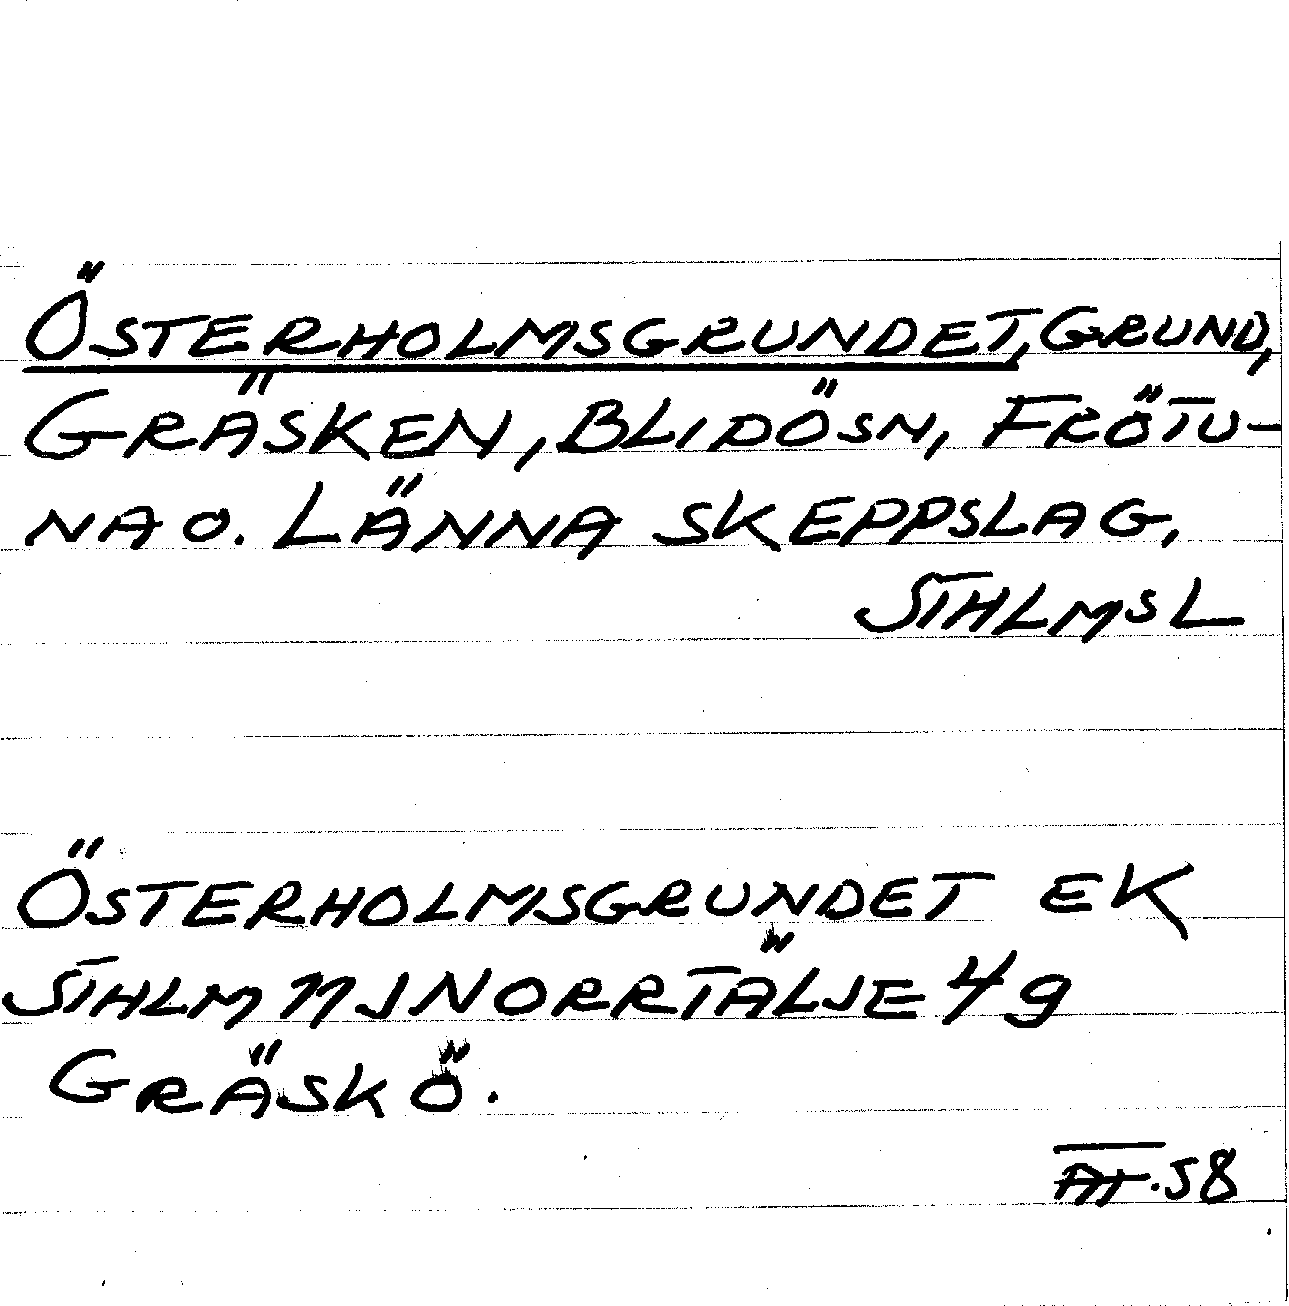 ÖSTERHOLMSGRUNDET, GRUND,
GRÄSKEN, BLIDÖSN, FRÖTU-
NA O. LÄNNA SKEPPSLAG,
STHLMSL
ÖSTERHOLMSGRUNDET EK
STHLM 11 J NORRTÄLJE 4 g
GRÄSKÖ.
58